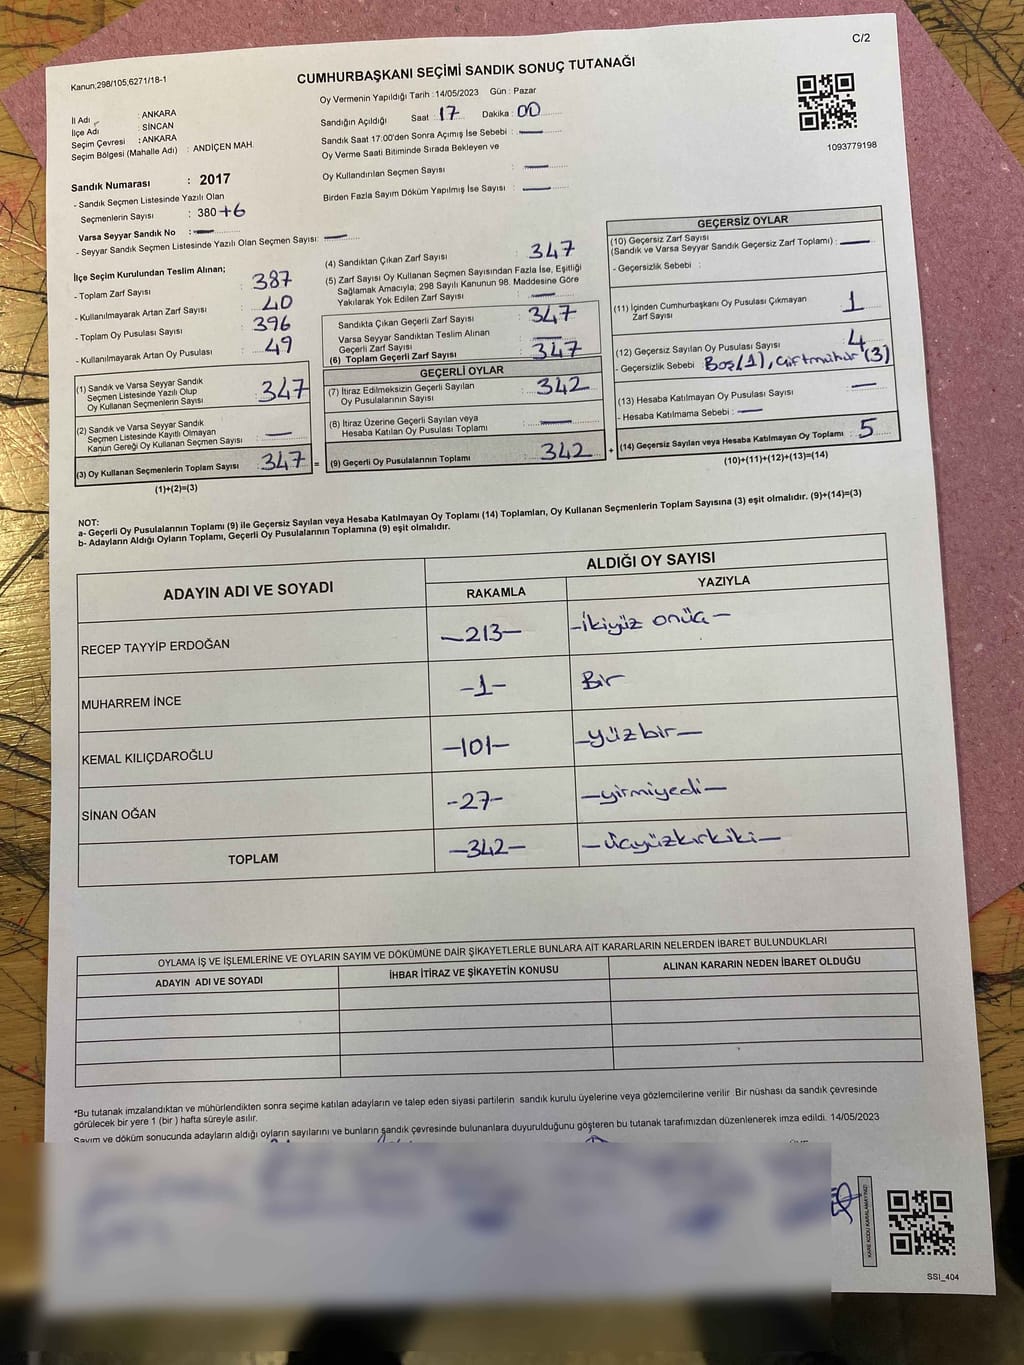 C/2
Kanun,298/105,6271/18-1
CUMHURBAŞKANI SEÇİMİ SANDIK SONUÇ TUTANAĞI
Oy Vermenin Yapıldığı Tarih : 14/05/2023 Gün : Pazar
İl Adı : ANKARA
İlçe Adı : SİNCAN
Seçim Çevresi : ANKARA
Seçim Bölgesi (Mahalle Adı) : ANDİÇEN MAH.
Sandık Numarası : 2017
- Sandık Seçmen Listesinde Yazılı Olan
Seçmenlerin Sayısı : 380 +6
Varsa Seyyar Sandık No : —
- Seyyar Sandık Seçmen Listesinde Yazılı Olan Seçmen Sayısı: —
Sandığın Açıldığı Saat 17 Dakika : 00
Sandık Saat 17:00'den Sonra Açımış İse Sebebi : —
Oy Verme Saati Bitiminde Sırada Bekleyen ve
Oy Kullandırılan Seçmen Sayısı : —
Birden Fazla Sayım Döküm Yapılmış İse Sayısı : —
1093779198
İlçe Seçim Kurulundan Teslim Alınan;
- Toplam Zarf Sayısı : 387
- Kullanılmayarak Artan Zarf Sayısı : 40
- Toplam Oy Pusulası Sayısı : 396
- Kullanılmayarak Artan Oy Pusulası : 49
(1) Sandık ve Varsa Seyyar Sandık
Seçmen Listesinde Yazılı Olup
Oy Kullanan Seçmenlerin Sayısı : 347
(2) Sandık ve Varsa Seyyar Sandık
Seçmen Listesinde Kayıtlı Olmayan
Kanun Gereği Oy Kullanan Seçmen Sayısı : —
(3) Oy Kullanan Seçmenlerin Toplam Sayısı : 347 =
(1)+(2)=(3)
(4) Sandıktan Çıkan Zarf Sayısı : 347
(5) Zarf Sayısı Oy Kullanan Seçmen Sayısından Fazla İse, Eşitliği
Sağlamak Amacıyla; 298 Sayılı Kanunun 98. Maddesine Göre
Yakılarak Yok Edilen Zarf Sayısı : —
Sandıkta Çıkan Geçerli Zarf Sayısı : 347
Varsa Seyyar Sandıktan Teslim Alınan
Geçerli Zarf Sayısı : —
(6) Toplam Geçerli Zarf Sayısı : 347
GEÇERLİ OYLAR
(7) İtiraz Edilmeksizin Geçerli Sayılan
Oy Pusulalarının Sayısı : 342
(8) İtiraz Üzerine Geçerli Sayılan veya
Hesaba Katılan Oy Pusulası Toplamı : —
(9) Geçerli Oy Pusulalarının Toplamı : 342 +
GEÇERSİZ OYLAR
(10) Geçersiz Zarf Sayısı
(Sandık ve Varsa Seyyar Sandık Geçersiz Zarf Toplamı) : —
- Geçersizlik Sebebi :
(11) İçinden Cumhurbaşkanı Oy Pusulası Çıkmayan
Zarf Sayısı : 1
(12) Geçersiz Sayılan Oy Pusulası Sayısı : 4
- Geçersizlik Sebebi : Boş(1), Çiftmühür (3)
(13) Hesaba Katılmayan Oy Pusulası Sayısı : —
- Hesaba Katılmama Sebebi : —
(14) Geçersiz Sayılan veya Hesaba Katılmayan Oy Toplamı : 5
(10)+(11)+(12)+(13)=(14)
NOT:
a- Geçerli Oy Pusulalarının Toplamı (9) ile Geçersiz Sayılan veya Hesaba Katılmayan Oy Toplamı (14) Toplamları, Oy Kullanan Seçmenlerin Toplam Sayısına (3) eşit olmalıdır. (9)+(14)=(3)
b- Adayların Aldığı Oyların Toplamı, Geçerli Oy Pusulalarının Toplamına (9) eşit olmalıdır.
ADAYIN ADI VE SOYADI
ALDIĞI OY SAYISI
RAKAMLA YAZIYLA
RECEP TAYYİP ERDOĞAN —213— —ikiyüz onüç—
MUHARREM İNCE —1— Bir
KEMAL KILIÇDAROĞLU —101— —yüzbir—
SİNAN OĞAN —27— —yirmiyedi—
TOPLAM —342— —üçyüzkırkiki—
OYLAMA İŞ VE İŞLEMLERİNE VE OYLARIN SAYIM VE DÖKÜMÜNE DAİR ŞİKAYETLERLE BUNLARA AİT KARARLARIN NELERDEN İBARET BULUNDUKLARI
ADAYIN ADI VE SOYADI İHBAR İTİRAZ VE ŞİKAYETİN KONUSU ALINAN KARARIN NEDEN İBARET OLDUĞU
*Bu tutanak imzalandıktan ve mühürlendikten sonra seçime katılan adayların ve talep eden siyasi partilerin sandık kurulu üyelerine veya gözlemcilerine verilir. Bir nüshası da sandık çevresinde
görülecek bir yere 1 (bir) hafta süreyle asılır.
Sayım ve döküm sonucunda adayların aldığı oyların sayılarını ve bunların sandık çevresinde bulunanlara duyurulduğunu gösteren bu tutanak tarafımızdan düzenlenerek imza edildi. 14/05/2023
KARE KODU KARALAMAYINIZ!
SSI_404